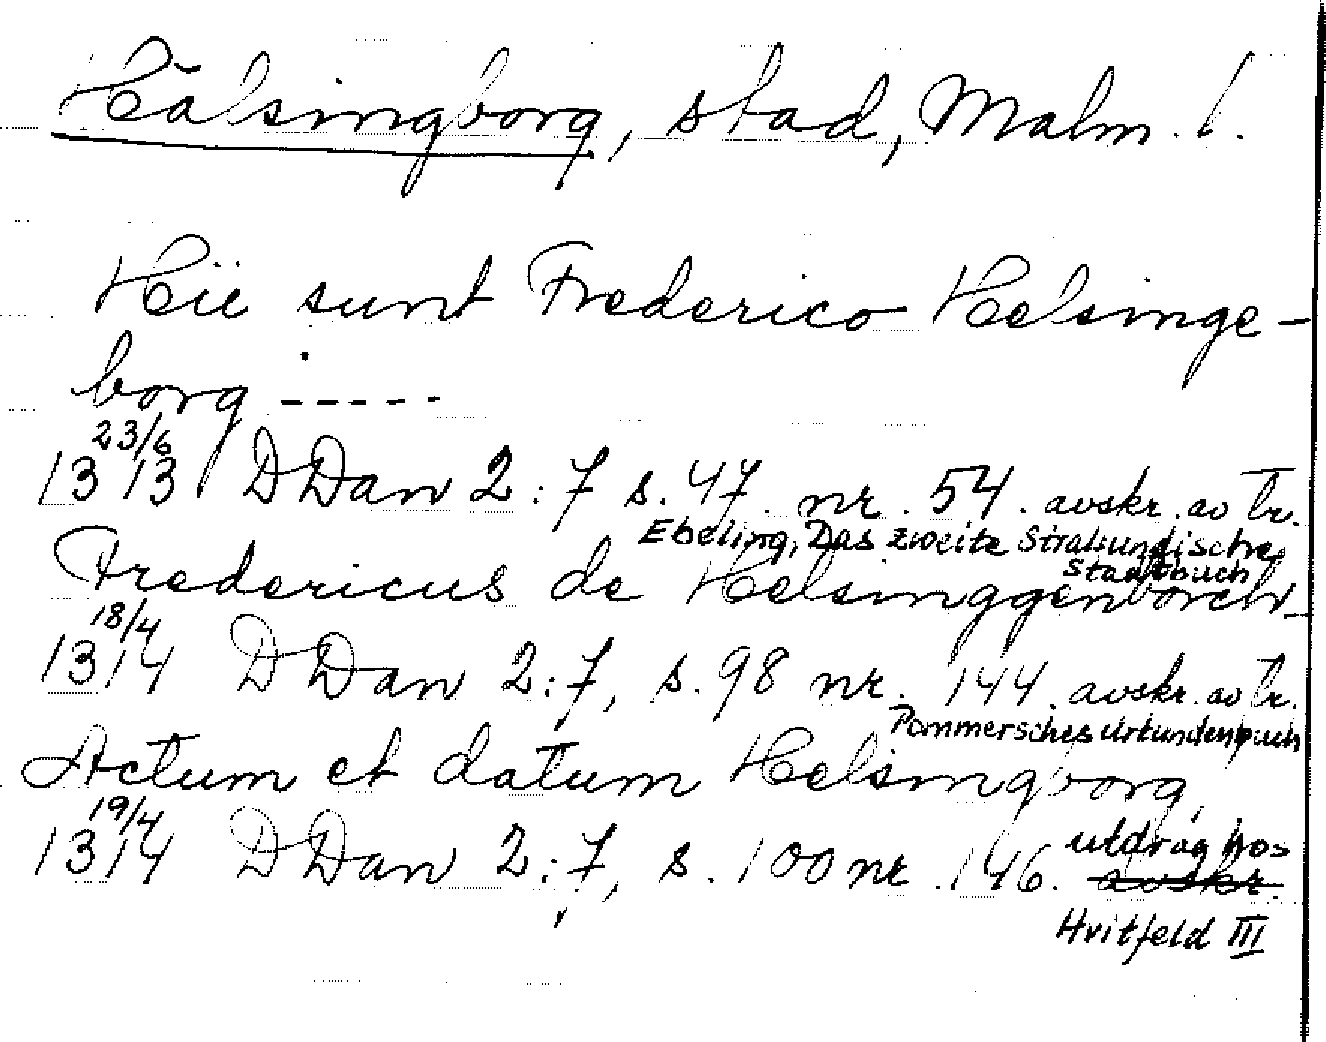 Hälsingborg, stad, Malm. l.
Hii sunt Frederico Helsinge-
borg -----
23/6
1313 DDan 2:7 s. 47 nr. 54. avskr. av tr.
Ebeling, Das zweite Stralsundische
Stadtbuch
Fredericus de Helsinggenborch
18/4
1314 DDan 2:7, s. 98 nr. 144. avskr. av tr.
Pommersches Urkundenbuch
Actum et datum Helsingborg
19/4
1314 DDan 2:7, s. 100 nr. 146. utdrag hos
avskr.
Hvitfeld III